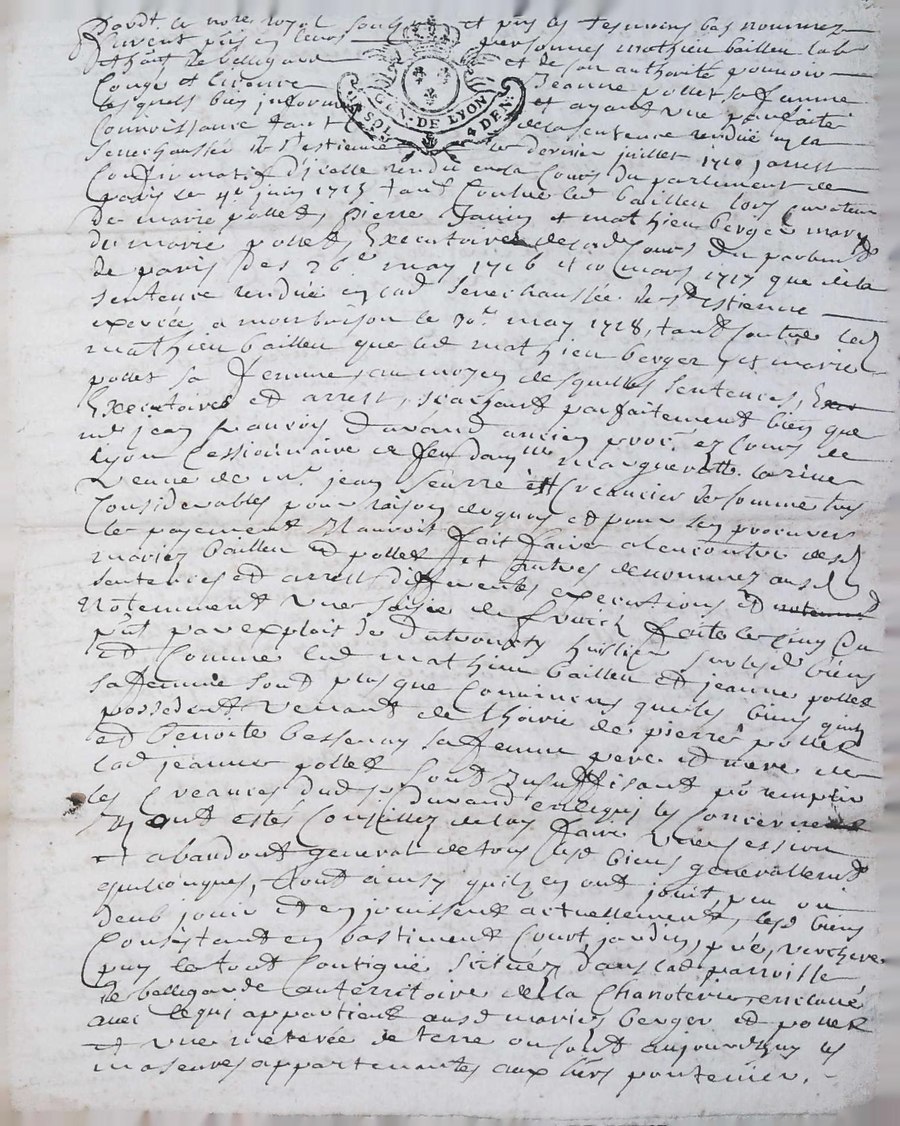 Pardt le no.re royal soub.. et pres les tesmoins bas nommez
furent p.nts en leurs personnes mathieu baillieu lab.
et hant de bellegarde et de son authorité pouvoir
Congé et licence Jeanne pollet sa femme
lesquels bien informés et ayant une parfaite
Connoissance tant de la sentence rendüe en la
Senechaussée de St estienne le dernier juillet 1710, arrest
Confirmatif d'icelle rendu en la Cour du parlement de
paris le 4e juin 1715 tant Contre led. baillieu lors curateur
de marie pollet, pierre Janin et mathieu berger mary
de marie pollet, Executoires de lad. Cour du parlem.t
de paris des 26e may 1716 et 10 mars 1717 que de la
sentence rendüe en lad. Senechaussée de St estienne
exercée a montbrison le 30e may 1718, tant Contre led.
mathieu baillieu que led. mathieu berger, et marie
pollet sa femme, au moyen desquelles sentences,
Executoires et arrest, sçachant parfaitement bien que
m.e jean françois durand ancien proc.r ez cours de
lyon Cessionnaire de feu dam.lle marguerite
veuve de m.r jean Seurre est Creancier de sommes tres
Considerables pour raison de quoy et pour sen procurer
le payement il auroit fait faire alencontre desd.
mariez baillieu et pollet et autres denommez ausd.
sentences et arrest differentes executions et
Notemment une saisie de fruict faite le cinq du
p.nt par exploit de huissier sur lesd. biens
et Comme led. mathieu baillieu et jeanne pollet
sa femme sont plus que Convaincus que les biens quils
possedent venant de lhoirie de pierre pollet
et benoite bessenay sa femme pere et mere de
lad. jeanne pollet sont Insuffisant p.r remplir
les Creances dud. s.r durand en ce qui les concerne
Ils ont estés Conseillez de luy faire une cession
et abandont general de tous lesd. biens generallem.t
quelconques, tout ainsy quilz en ont jouit, pu ou
deub jouir et en jouissent actuellement, lesd. biens
Consistant en bastiment Court jardin, pré, verchere
puy le tout Contigue scituéz dans lad. parroisse
de bellegarde au territoire de la Chanoterie, enclavé
avec ce qui appartient ausd. mariez berger et pollet
et une meterée de terre ou sont aujourdhuy les
masures appartenantes aux hers pontenier.
GEN. DE LYON
SOL 4 DEN.